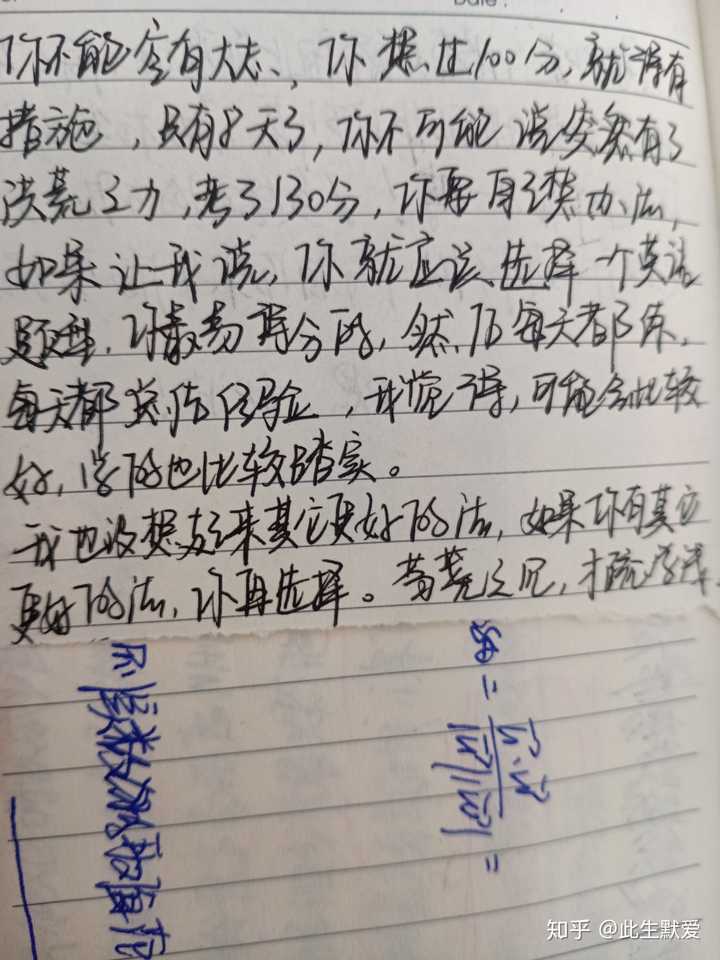 Date:
你不能空有大志、你想过100分,就得有
措施,只有8天了,你不可能说突然有了
洪荒之力,考了130分,你要自己想办法,
如果让我说,你就应该选择一个英语
题型,你最易得分的,然后每天都练,
每天都总结经验,我觉得,可能会比较
好,学的也比较踏实。
我也没想起来其它更好的法,如果你有其它
更好的法,你再选择。
知乎 @此生默爱